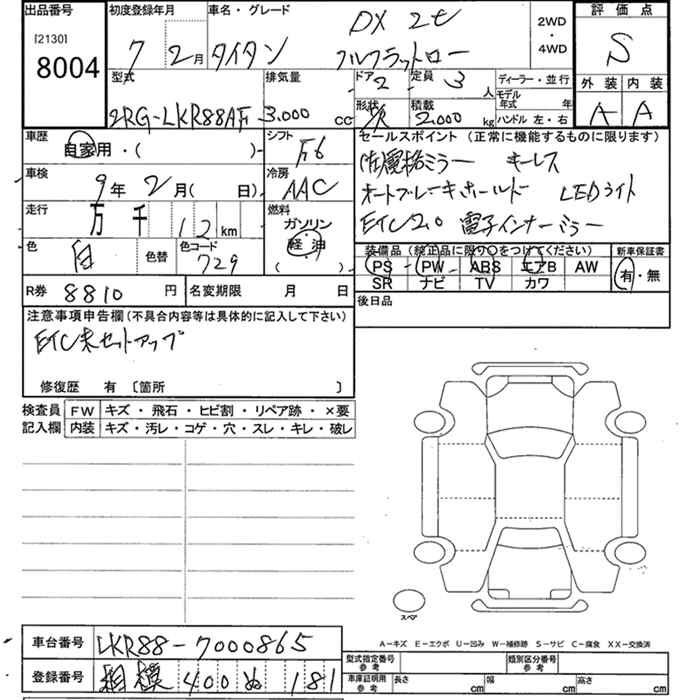 出品番号 初度登録年月 車名・グレード DX 2t 2WD・4WD 評価点
[2130]
8004 7 2月 タイタン フルフラットロー S
型式 排気量 ドア 2 定員 3人 ディーラー・並行 外装 内装
モデル年式 年
2RG-LKR88AF 3,000cc 形状 積載 2,000kg ハンドル 左・右 A A
車歴 自家用・( ) シフト F6 セールスポイント (正常に機能するものに限ります)
車検 9年2月( 日) 冷房 AAC ミラー キーレス
オートブレーキホールド LEDライト
走行 万 千 12km 燃料 ガソリン ETC2.0 電子インナーミラー
色 白 色替 色コード 729 軽油 ( )
装備品 (純正品に限り○をつけてください) 新車保証書
PS PW ABS エアB AW 有・無
SR ナビ TV カワ
R券 8810円 名変期限 月 日 後日品
注意事項申告欄(不具合内容等は具体的に記入して下さい)
ETC未セットアップ
修復歴 有 〔箇所 〕
検査員 FW キズ・飛石・ヒビ割・リペア跡・×要
記入欄 内装 キズ・汚レ・コゲ・穴・スレ・キレ・破レ
スペア
A-キズ E-エクボ U-凹み W-補修跡 S-サビ C-腐食 XX-交換済
車台番号 LKR88-7000865
型式指定番号 参考 類別区分番号 参考
登録番号 相模 400 ぬ 181
車庫証明用 参考 長さ cm 幅 cm 高さ cm